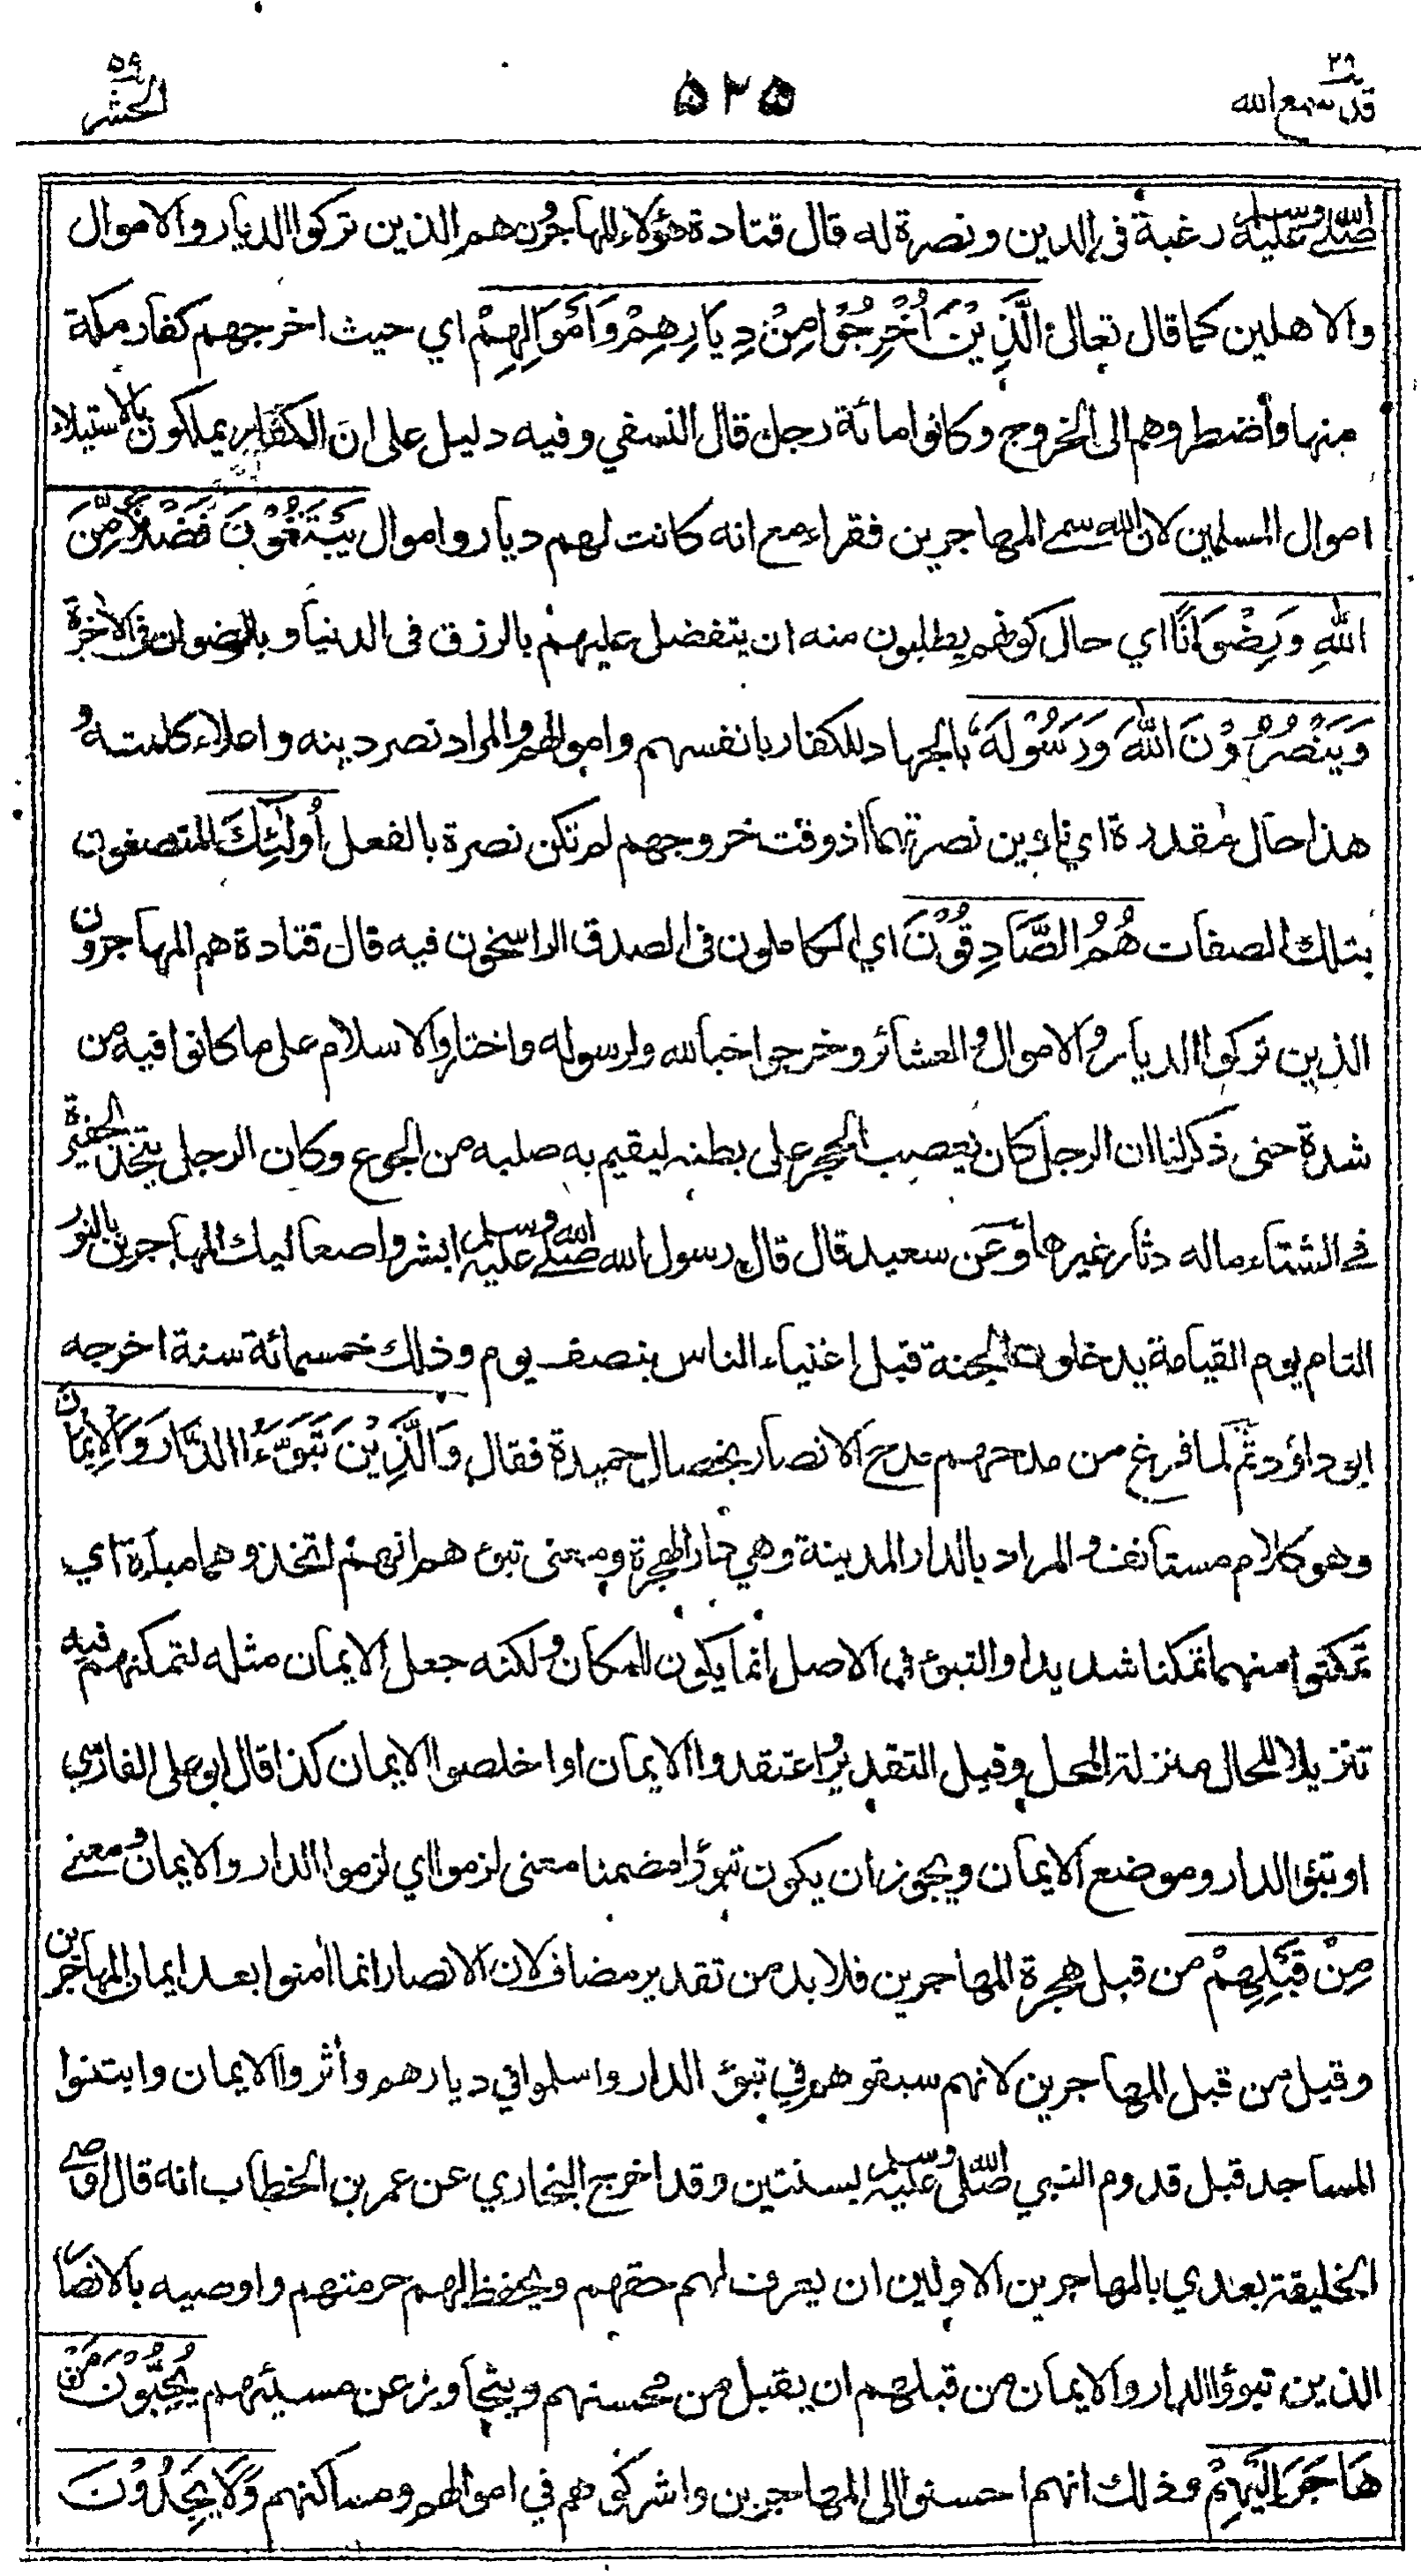 قد سمع الله ٢٨
٥٢٥
الحشر ٥٩
صلى الله عليه وسلم رغبة في الدين ونصرة له قال قتادة هؤلاء المهاجرون هم الذين تركوا الديار والاموال
والاهلين كما قال تعالى الَّذِيْنَ اُخْرِجُوْا مِنْ دِيَارِهِمْ وَاَمْوَالِهِمْ اي حيث اخرجهم كفار مكة
منها واضطروهم الى الخروج وكانوا مائة رجل قال النسفي وفيه دليل على ان الكفار يملكون بالاستيلاء
اموال المسلمين لان الله سمى المهاجرين فقراء مع انه كانت لهم ديار واموال يَبْتَغُوْنَ فَضْلًا مِّنَ
اللهِ وَرِضْوَانًا اي حال كونهم يطلبون منه ان يتفضل عليهم بالرزق في الدنيا وبالرضوان في الاخرة
وَيَنْصُرُوْنَ اللهَ وَرَسُوْلَهٗ بالجهاد للكفار بانفسهم واموالهم والمراد نصر دينه واعلاء كلمته و
هذا حال مقدرة اي ناوين نصرتهما اذ وقت خروجهم لم تكن نصرة بالفعل اُولٰئِكَ المتصفون
بتلك الصفات هُمُ الصَّادِقُوْنَ اي الكاملون في الصدق الراسخون فيه قال قتادة هم المهاجرون
الذين تركوا الديار والاموال والعشائر وخرجوا حبا لله ولرسوله واختاروا الاسلام على ما كانوا فيه من
شدة حتى ذكر لنا ان الرجل كان يعصب الحجر على بطنه ليقيم به صلبه من الجوع وكان الرجل يتخذ الحفيرة
في الشتاء ماله دثار غيرها وعن سعيد قال قال رسول الله صلى الله عليه وسلم ابشروا صعاليك المهاجرين بالنور
التام يوم القيامة يدخلون الجنة قبل اغنياء الناس بنصف يوم وذلك خمسمائة سنة اخرجه
ابو داؤد ثم لما فرغ من مدحهم مدح الانصار بخصال حميدة فقال وَالَّذِيْنَ تَبَوَّءُوا الدَّارَ وَالْاِيْمَانَ
وهو كلام مستانف والمراد بالدار المدينة وهي دار الهجرة ومعنى تبوئهم انهم اتخذوهما مباءة اي
تمكنوا منهما تمكنا شديدا والتبوئ في الاصل انما يكون للمكان ولكنه جعل الايمان مثله لتمكنهم فيه
تنزيلا للحال منزلة المحل وقيل التقدير واعتقدوا الايمان او اخلصوا الايمان كذا قال ابو علي الفارسي
او تبوؤا الدار وموضع الايمان ويجوز ان يكون تبوؤا مضمنا معنى لزموا اي لزموا الدار والايمان ومعنى
مِنْ قَبْلِهِمْ من قبل هجرة المهاجرين فلا بد من تقدير مضاف لان الانصار انما امنوا بعد ايمان المهاجرين
وقيل من قبل المهاجرين لانهم سبقوهم في تبوئ الدار واسلموا في ديارهم وأثروا الايمان وابتنوا
المساجد قبل قدوم النبي صلى الله عليه وسلم بسنتين وقد اخرج البخاري عن عمر بن الخطاب انه قال اوصي
الخليفة بعدي بالمهاجرين الاولين ان يعرف لهم حقهم ويحفظ لهم حرمتهم واوصيه بالانصار
الذين تبوؤا الدار والايمان من قبلهم ان يقبل من محسنهم ويتجاوز عن مسيئهم يُحِبُّوْنَ مَنْ
هَاجَرَ اِلَيْهِمْ وذلك انهم احسنوا الى المهاجرين واشركوهم في اموالهم ومساكنهم وَلَا يَجِدُوْنَ